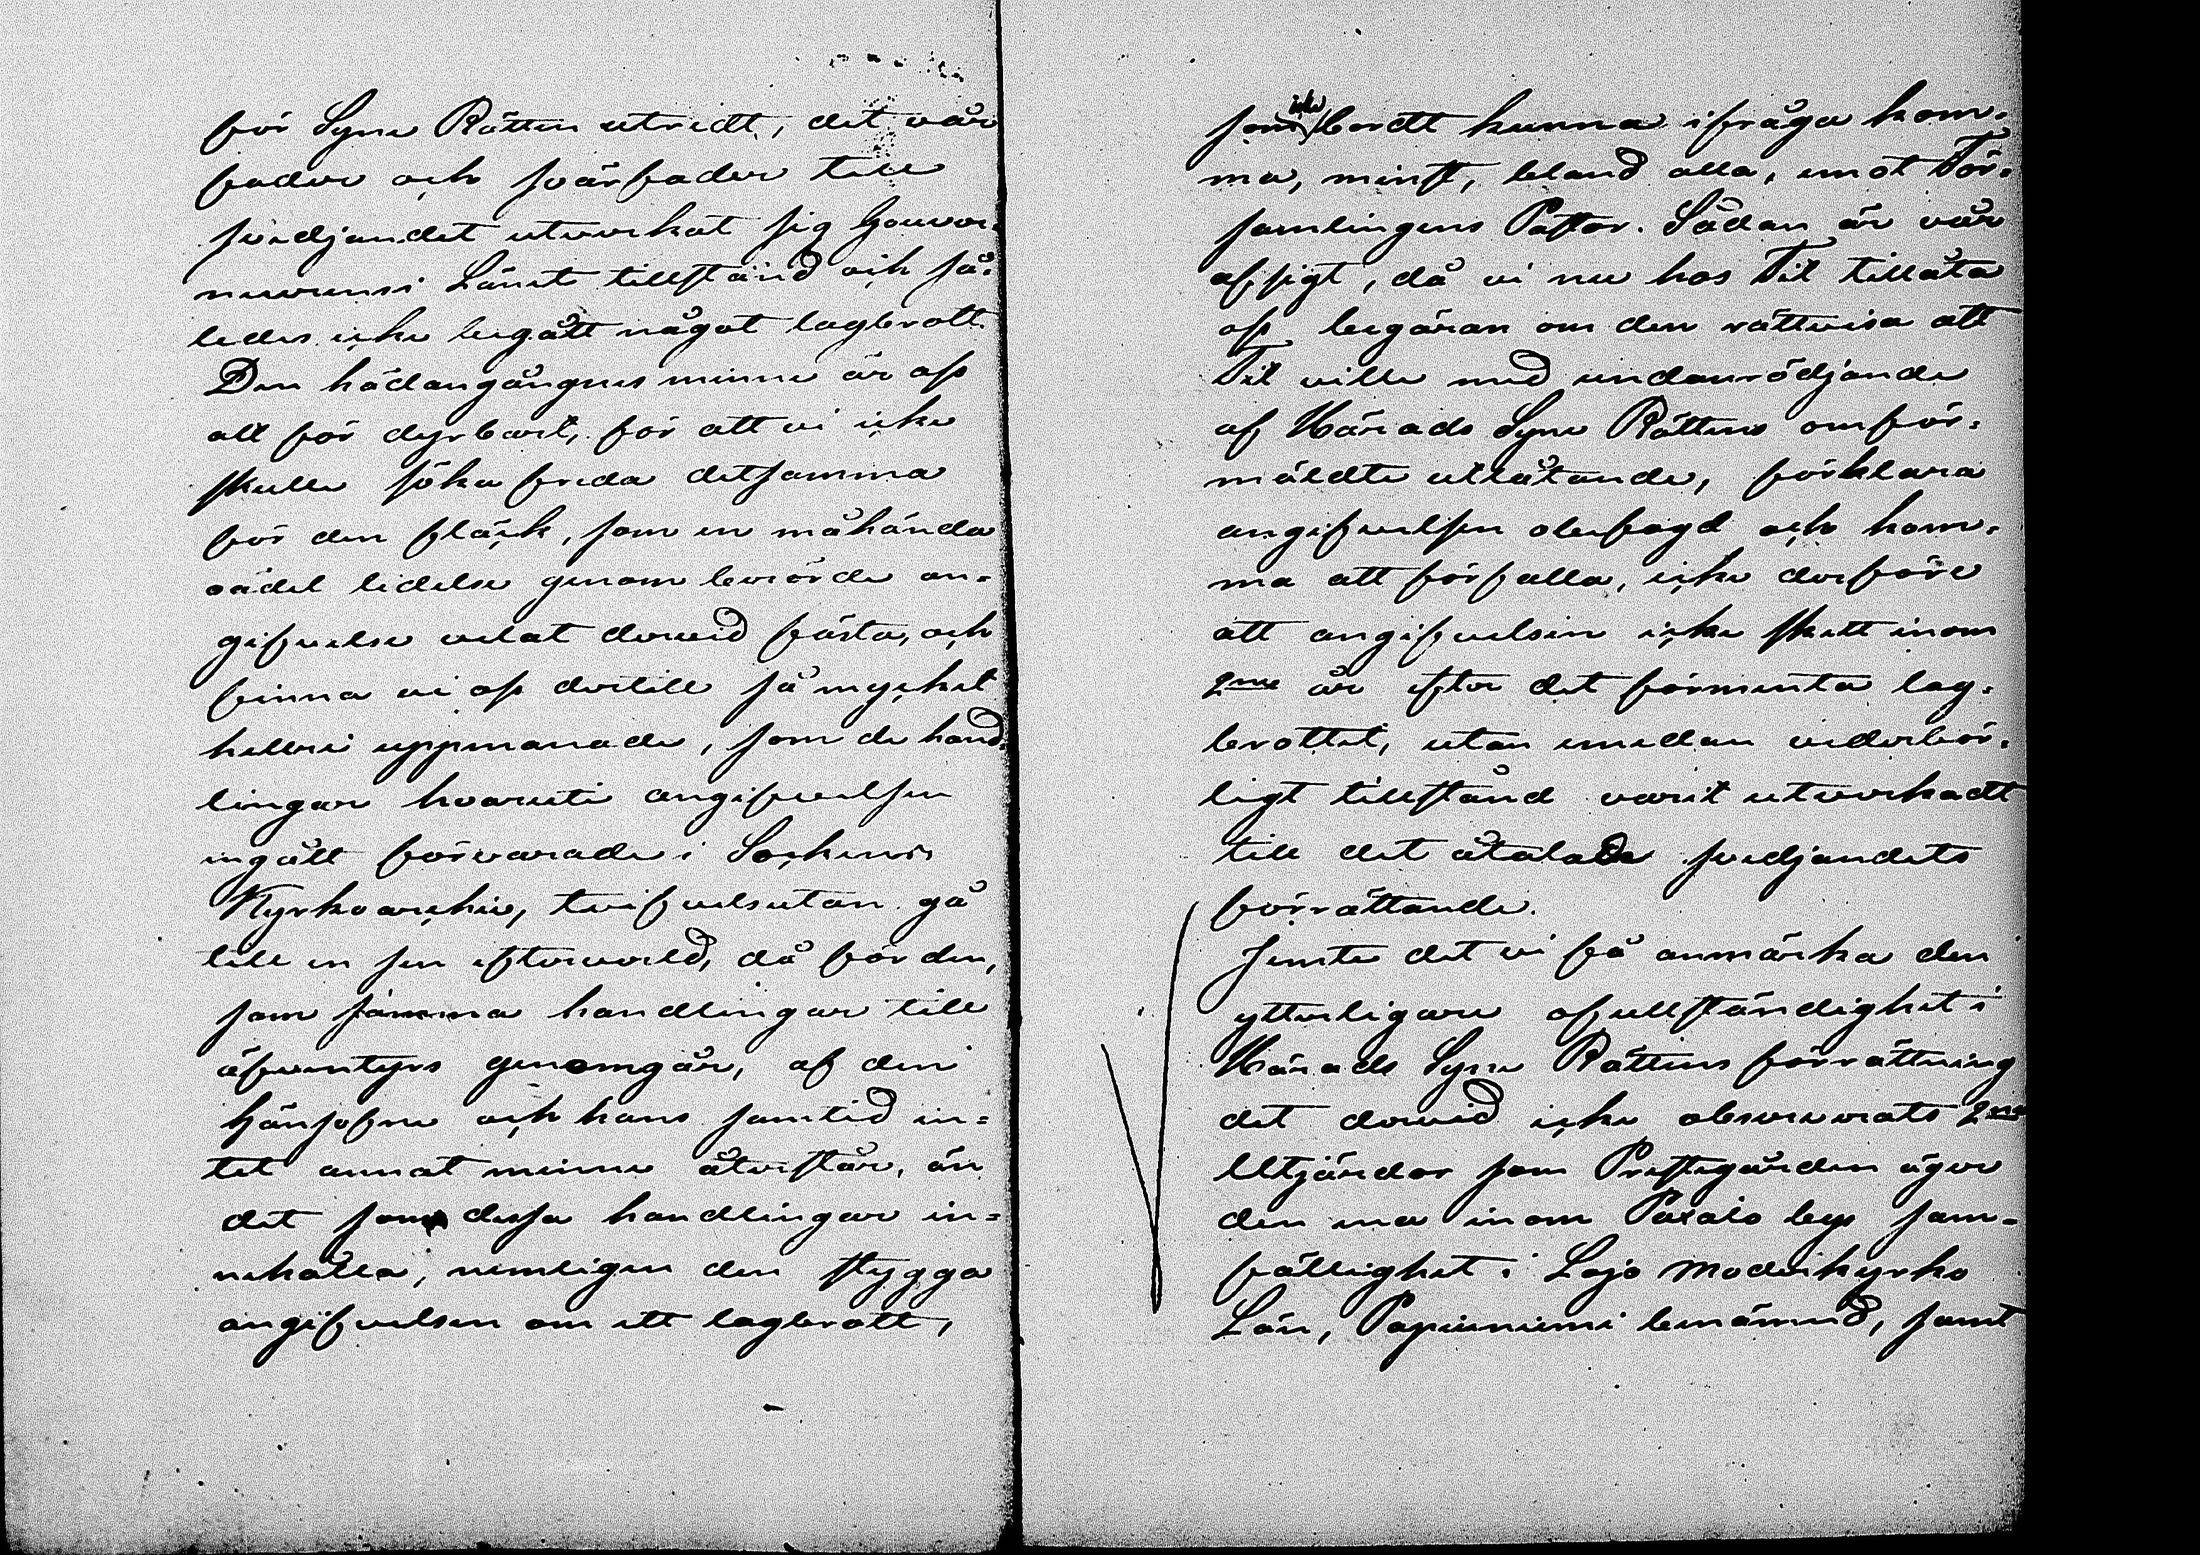 för Syne Rätten utredt, det vår
fader och svärfader till
svedjandet utverkat sig Gouver-
neurens i Länet tillstånd och så-
ledes icke begått något lagbrott.
Den hädangångnes minne är oss
allt för dyrbart, för att vi icke
skulle söka freda detsamma
för den fläck, som en måhända
oädel lidelse genom berörde an-
gifvelse velat dervid fästa, och
finna vi oss dertill så mycket
hellre uppmanade, som de hand-
lingar hvaruti angifvelsen
ingått förvarade i Sockens
Kyrkoarchiv, tvifvelsutan gå
till en sen efterverld, då för den,
som samma handlingar till
äfventyrs genomgår, af den
hänsofne och hans samtid in-
tet annat minne återstår, än
det som dessa handlingar in-
nehålla, nemligen den stygga
angifvelsen om ett lagbrott,
som icke bordt kunna ifråga kom-
ma, minst, bland alla, emot För-
samlingens Pastor. Sådan är vår
afsigt, då vi nu hos Tit tillåta
oss begäran om den rättvisa att
Tit ville med undanrödjande
af Härads Syne Rättens omför-
mäldte utlåtande, förklara
angifvelsen obefogd och kom-
ma att förfalla, icke derföre
att angifvelsen icke skett inom
2ne år efter det förmenta lag-
brottet, utan emedan vederbör-
ligt tillstånd varit utverkadt
till det åtalade svedjandets
förrättande.
Jemte det vi få anmärka den
ytterligare ofullständighet i
Härads Syne Rättens förrättning
det dervid icke observerats 2ne
Utjärdor som Prestgården äger
den ena inom Paxalo bys sam-
fällighet i Lojo Moderkyrko
Län, Papinniemi benämnd, samt